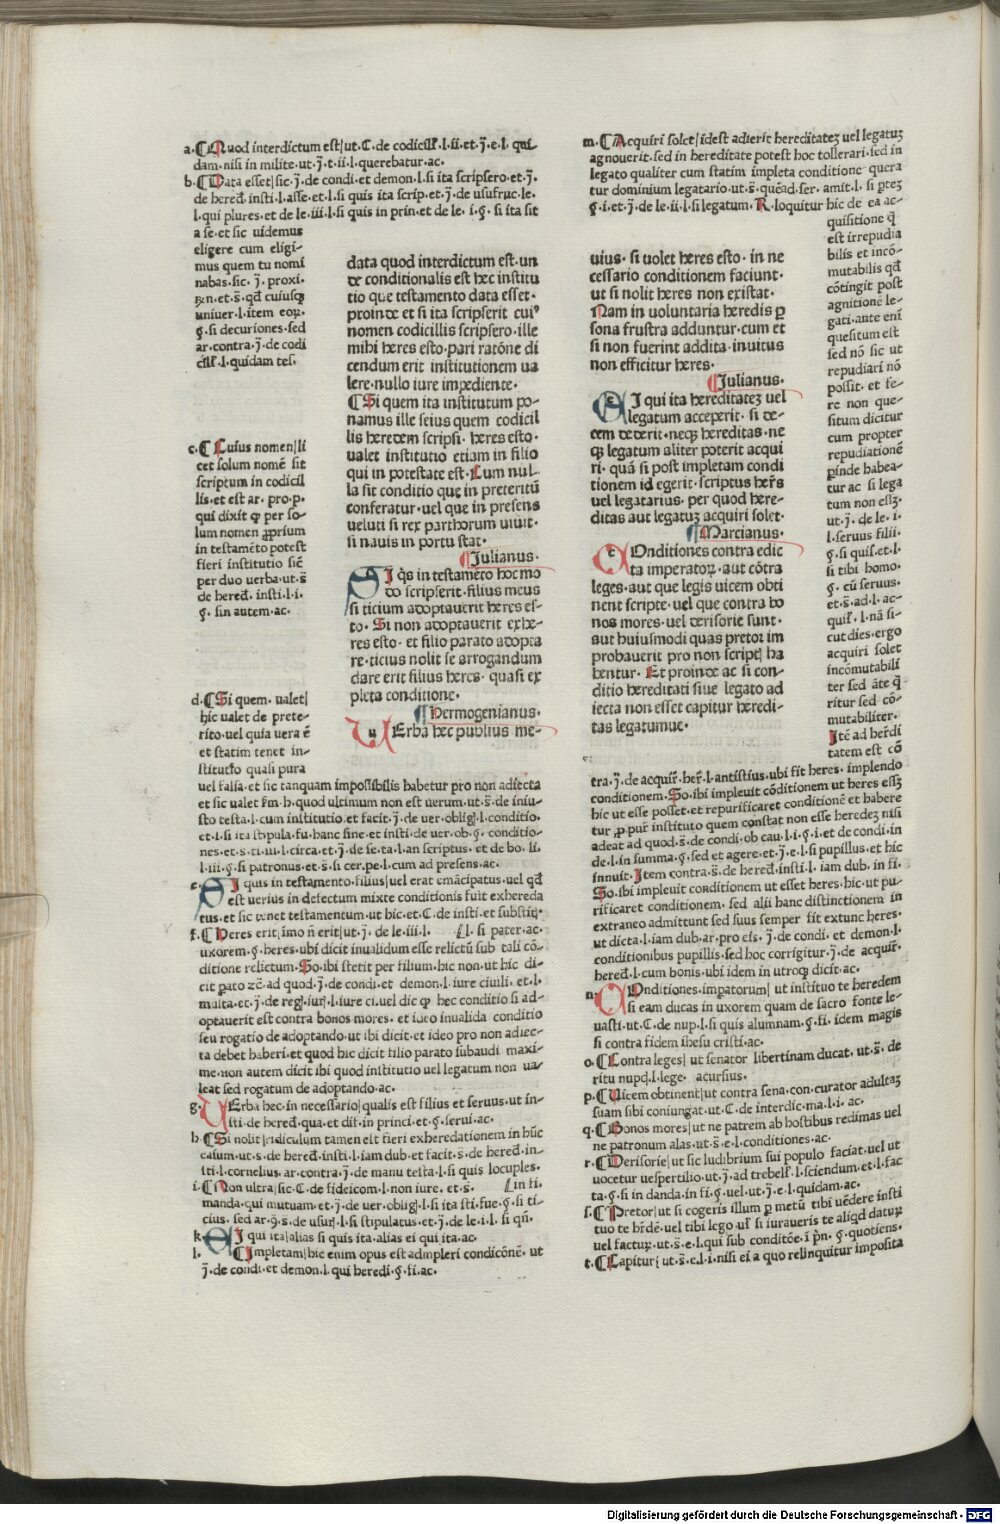 a.¶Quod interdictum est/ut.C.de codicill̃.l.ii.et.j̃.e.l.qui
dam.nisi in milite.ut.j̃.t.ii.l.querebatur.ac.
b.¶Data esset/sic.j̃.de condi.et demon.l.si ita scripsero.et.j̃.
de hered̃.insti.l.asse.et.l.si quis ita scrip.et.j̃.de usufruc.le.
l.qui plures.et de le.iii.l.si quis in prin.et de le.i.§.si ita sit
a se.et sic uidemus
eligere cum eligi-
mus quem tu nomi
nabas.sic.j̃.proxi.
et.s̃.qd̃ cuiusqꝫ
uniuer.l.item eoꝝ.
§.si decuriones.sed
ar.contra.j̃.de codi
cill̃.l.quidam tes.
c.¶Lusus nomen/li
cet solum nomẽ sit
scriptum in codicil
lis.et est ar.pro.p.
qui dixit ꝙ per so-
lum nomen ꝓprium
in testamẽto potest
fieri institutio sic̃
per duo uerba.ut.s̃
de hered̃.insti.l.i.
§.sin autem.ac.
d.¶Si quem.ualet/
hic ualet de prete-
rito.uel quia uera ẽ
et statim tenet in-
stitutio quasi pura
uel falsa.et sic tanquam impossibilis habetur pro non adiecta
et sic ualet h.quod ultimum non est uerum.ut.s̃.de iniu-
sto testa.l.cum institutio.et facit.j̃.de uer.oblig̃.l.conditio.
et.l.si ita stipula.fu.hanc sine.et insti.de uer.ob.§.conditio-
nes.et.s.ti.iii.l.circa.et.j̃.de se.ta.l.an scriptus.et de bo.li.
l.iii.§.si patronus.et.s̃.si cer.pe.l.cum ad presens.ac.
e.SI quis in testamento.filius/uel erat emãcipatus.uel qd̃
est uerius in defectum mixte conditionis fuit exhereda
tus.et sic tenet testamentum.ut hic.et.C.de insti.et substit̃.
f.¶Heres erit/imo ñ erit/ut.j̃.de le.iii.l. l.si pater.ac.
uxorem.§.heres.ubi dicit inualidum esse relictũ sub tali cõ-
ditione relictum.So.ibi stetit per filium.hic non.ut hic di-
cit ad quod.j̃.de condi.et demon.l.iure ciuili.et.l.
multa.et.j̃.de reg̃.iur̃.l.iure ci.uel dic ꝙ hec conditio si ad-
optauerit est contra bonos mores.et ideo inualida conditio
seu rogatio de adoptando.ut ibi dicit.et ideo pro non adiec-
ta debet haberi.et quod hic dicit filio parato subaudi maxi-
me.non autem dicit ibi quod institutio uel legatum non ua-
leat sed rogatum de adoptando.ac.
g.UErba hec.in necessario/qualis est filius et seruus.ut in-
sti.de hered̃.qua.et dif̃.in princi.et.§.serui.ac.
h.¶Si nolit/ridiculum tamen est fieri exheredationem in hũc
casum.ut.s.de hered̃.insti.l.iam dub.et facit.s̃.de hered̃.in-
sti.l.cornelius.ar.contra.j̃.de manu testa.l.si quis locuples.
i.¶Non ultra/sic.C.de fideicom.l.non iure.et.s̃. in fi.
manda.qui mutuam.et.j̃.de uer.oblig̃.l.si ita sti.fue.§.si ti-
cius.sed ar.ꝯ̃.s̃.de usur̃.l.si stipulatus.et.j̃.de le.i.l.si qñ.
k.SI qui ita/alias si quis ita.alias ei qui ita.ac.
l.¶Impletam/hic enim opus est adimpleri condicõnẽ.ut
j̃.de condi.et demon.l.qui heredi.§.fi.ac.
data quod interdictum est.un
de conditionalis est hec institu
tio que testamento data esset.
proinde et si ita scripserit cui⁹
nomen codicillis scripsero.ille
mihi heres esto.pari ratõne di
cendum erit institutionem ua
lere.nullo iure impediente.
¶Si quem ita institutum po-
namus ille seius quem codicil
lis heredem scripsi.heres esto.
ualet institutio etiam in filio
qui in potestate est.Cum nul-
la sit conditio que in preteritũ
conferatur.uel que in presens
ueluti si rex parthorum uiuit.
si nauis in portu stat.
¶Julianus.
SI q̃s in testamẽto hoc mo
do scripserit.filius meus
si ticium adoptauerit heres es-
to.Si non adoptauerit exhe-
res esto.et filio parato adopta
re.ticius nolit se arrogandum
dare erit filius heres.quasi ex
pleta conditione.
¶Hermogenianus.
UErba hec publius me-
uius.si uolet heres esto.in ne
cessario conditionem faciunt.
ut si nolit heres non existat.
Nam in uoluntaria heredis ꝑ
sona frustra adduntur.cum et
si non fuerint addita.inuitus
non efficitur heres.
¶Julianus.
EI qui ita hereditateꝫ uel
legatum acceperit.si de-
cem dederit.neqꝫ hereditas.ne
qꝫ legatum aliter poterit acqui
ri.quã si post impletam condi
tionem id egerit.scriptus her̃s
uel legatarius.per quod here-
ditas aut legatuꝫ acquiri solet.
¶Marcianus.
COnditiones contra edic
ta imperatoꝝ.aut cõtra
leges.aut que legis uicem obti
nent scripte.uel que contra bo
nos mores.uel derisorie sunt.
aut huiusmodi quas pretor im
probauerit pro non scriptj ha
bentur.Et proinde ac si con-
ditio hereditati siue legato ad
iecta non esset capitur heredi-
tas legatumue.
m.¶Acquiri solet/idest adierit hereditateꝫ uel legatuꝫ
agnouerit.sed in hereditate potest hoc tollerari.sed in
legato qualiter cum statim impleta conditione quera
tur dominium legatario.ut.s̃.quẽad.ser.amit.l.si ꝑteꝫ
§.i.et.j̃.de le.ii.l.si legatum.R̃.loquitur hic de ea ac-
quisitione q̃
est irrepudia
bilis et incõ-
mutabilis qd̃
cõtingit post
agnitionẽ le-
gati.ante eni
quesitum est
sed nõ sic ut
repudiari nõ
possit.et fe-
re non que-
situm dicitur
cum propter
repudiationẽ
ꝑinde habea-
tur ac si lega
tum non essꝫ.
ut.j̃.de le.i.
l.seruus filii.
§.si quis.et.l.
si tibi homo.
§.cũ seruus.
et.s̃.ad.l.ac-
quil̃.l.nã si-
cut dies.ergo
acquiri solet
incõmutabili
ter sed ãte q̃
ritur sed cõ-
mutabiliter.
Itẽ ad her̃di
tatem est cõ
tra.j̃.de acquir̃.her̃.l.antistius.ubi fit heres.implendo
conditionem.So.ibi impleuit cõditionem ut heres essꝫ
hic ut esse posset.et repurificaret conditionẽ et habere
tur ꝓ pur̃ instituto quem constat non esse heredeꝫ nisi
adeat ad quod.s̃.de condi.ob cau.l.i.§.i.et de condi.in
de.l.in summa.§.sed et agere.et.j̃.e.l.si pupillus.et hic
innuit.Item contra.s̃.de hered̃.insti.l.iam dub.in fi.
So.ibi impleuit conditionem ut esset heres.hic.ut pu-
rificaret conditionem.sed alii hanc distinctionem in
extraneo admittunt sed suus semper fit extunc heres.
ut dicta.l.iam dub.ar.pro eis.j̃.de condi.et demon.l.
conditionibus pupillis.sed hoc corrigitur.j̃.de acquir̃.
hered̃.l.cum bonis.ubi idem in utroqꝫ dicit.ac.
n.COnditiones.imꝑatorum/ut instituo te heredem
si eam ducas in uxorem quam de sacro fonte le-
uasti.ut.C.de nup.l.si quis alumnam.§.fi.idem magis
si contra fidem ihesu cristi.ac.
o.¶Contra leges/ut senator libertinam ducat.ut.s̃.de
ritu nupc̃.l.lege. acursius.
p.¶Uicem obtinent/ut contra sena.con.curator adultaꝫ
suam sibi coniungat.ut.C.de interdic.ma.l.i.ac.
q.¶Bonos mores/ut ne patrem ab hostibus redimas uel
ne patronum alas.ut.s̃.e.l.conditiones.ac.
r.¶Derisorie/ut sic ludibrium sui populo faciat.uel ut
uocetur uespertilio.ut.j̃.ad trebell̃.l.sciendum.et.l.fac
ta.§.si in danda.in fi.§.uel.ut.j̃.e.l.quidam.ac.
s.¶Pretor/ut si cogeris illum ꝑ metũ tibi uẽdere insti
tuo te hr̃dẽ.uel tibi lego.us̃ si iuraueris te aliqd daturꝝ
uel facturꝝ.ut.s̃.e.l.qui sub conditõe.ĩ pñ.§.quotiens.
t.¶Capitur/ut.s̃.e.l.i.nisi ei a quo relinquitur imposita
Digitalisierung gefördert durch die Deutsche Forschungsgemeinschaft - DFG